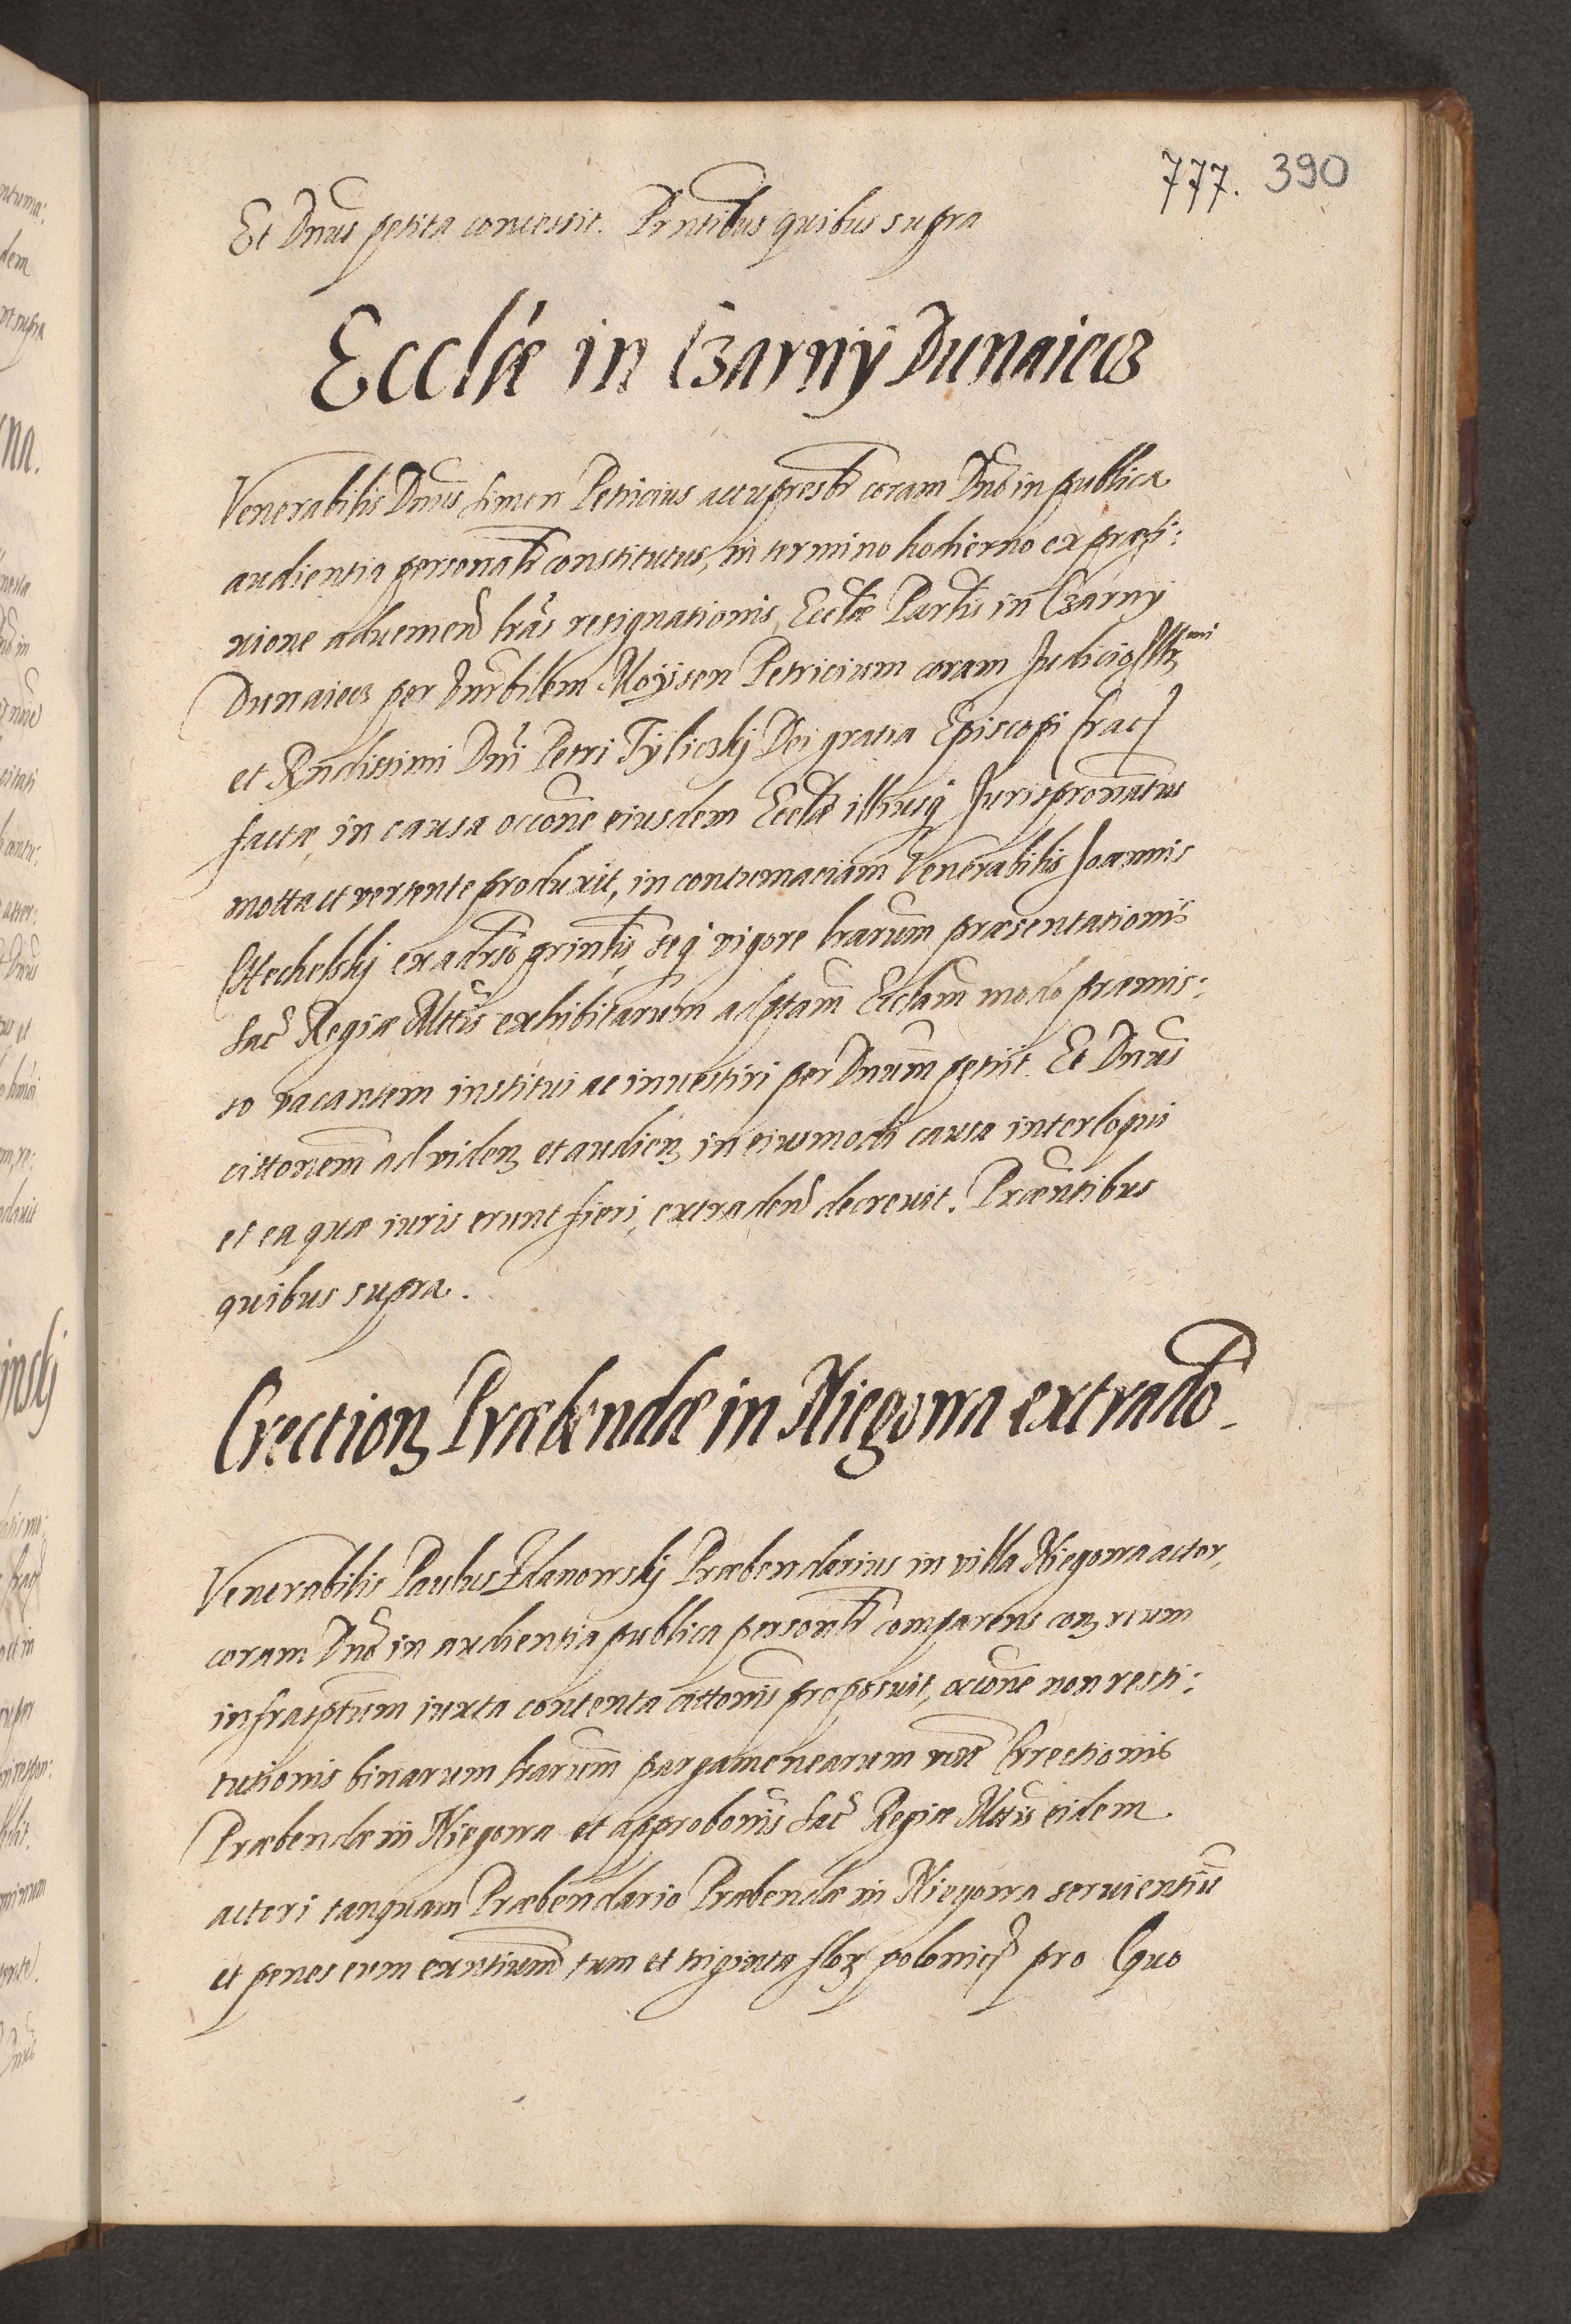 777. 390
Et Dnus petita concessit. Prntibus quibus supra
Ecclæ in Czarny Dunaiecz
Venerabilis Dnus Simon Petricius actu presbr coram Dno in publica
audientia personalr constitutus, in termino hodierno ex præfi:
xione aduenien lras resignationis Ecclæ Parlis in Czarny
Dunaiecz per Hnrbilem Moysen Petricium coram Judicio Illmi
et Rndissimi Dni Petri Tyliczkj Dei gratia Episcopi Crac
factæ, in causa occone eiusdem Ecclæ illiusq Jurispronatus
motta et vertente produxit, in contumaciam Venerabilis Joannis
ex aduso printis, seq vigore lrarum præsentationis
Sac Regiæ Mttis exhibitarum ad ptam Ecclam modo præmis:
so vacantem institui ac inuestiri per Dnum petiit. Et Dnus
cittonem ad viden et audien in eiusmodi causa interloqui
et ea quæ iuris erunt fieri, extraden decreuit. Præntibus
quibus supra.
Erection Præbendæ in Niegowa extrado.
Venerabilis Paulus Zdanowskj Præbendarius in villa Niegowa actor,
coram Dno in audientia publica personalr comparens con reum
infrasptum iuxta contenta cittonis proposuit, occone non resti:
tutionis binarum lrarum pargamenearum vut Erectionis
Præbendæ in Niegowa et approbonis Sac Regiæ Mttis eidem
actori tanquam Præbendario Præbendæ in Niegowa seruientiu
et penes eum exntium tum et triginta flor polonic pro quo